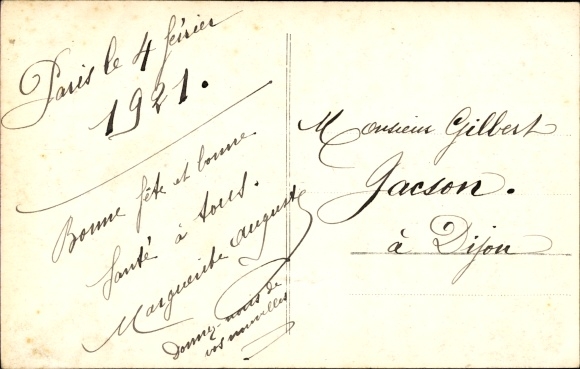 Paris le 4 février
1921.
Bonne fête et bonne
Santé à tous.
Marguerite Auguste
donnez-nous de
vos nouvelles
Monsieur Gilbert
Jacson.
à Dijon